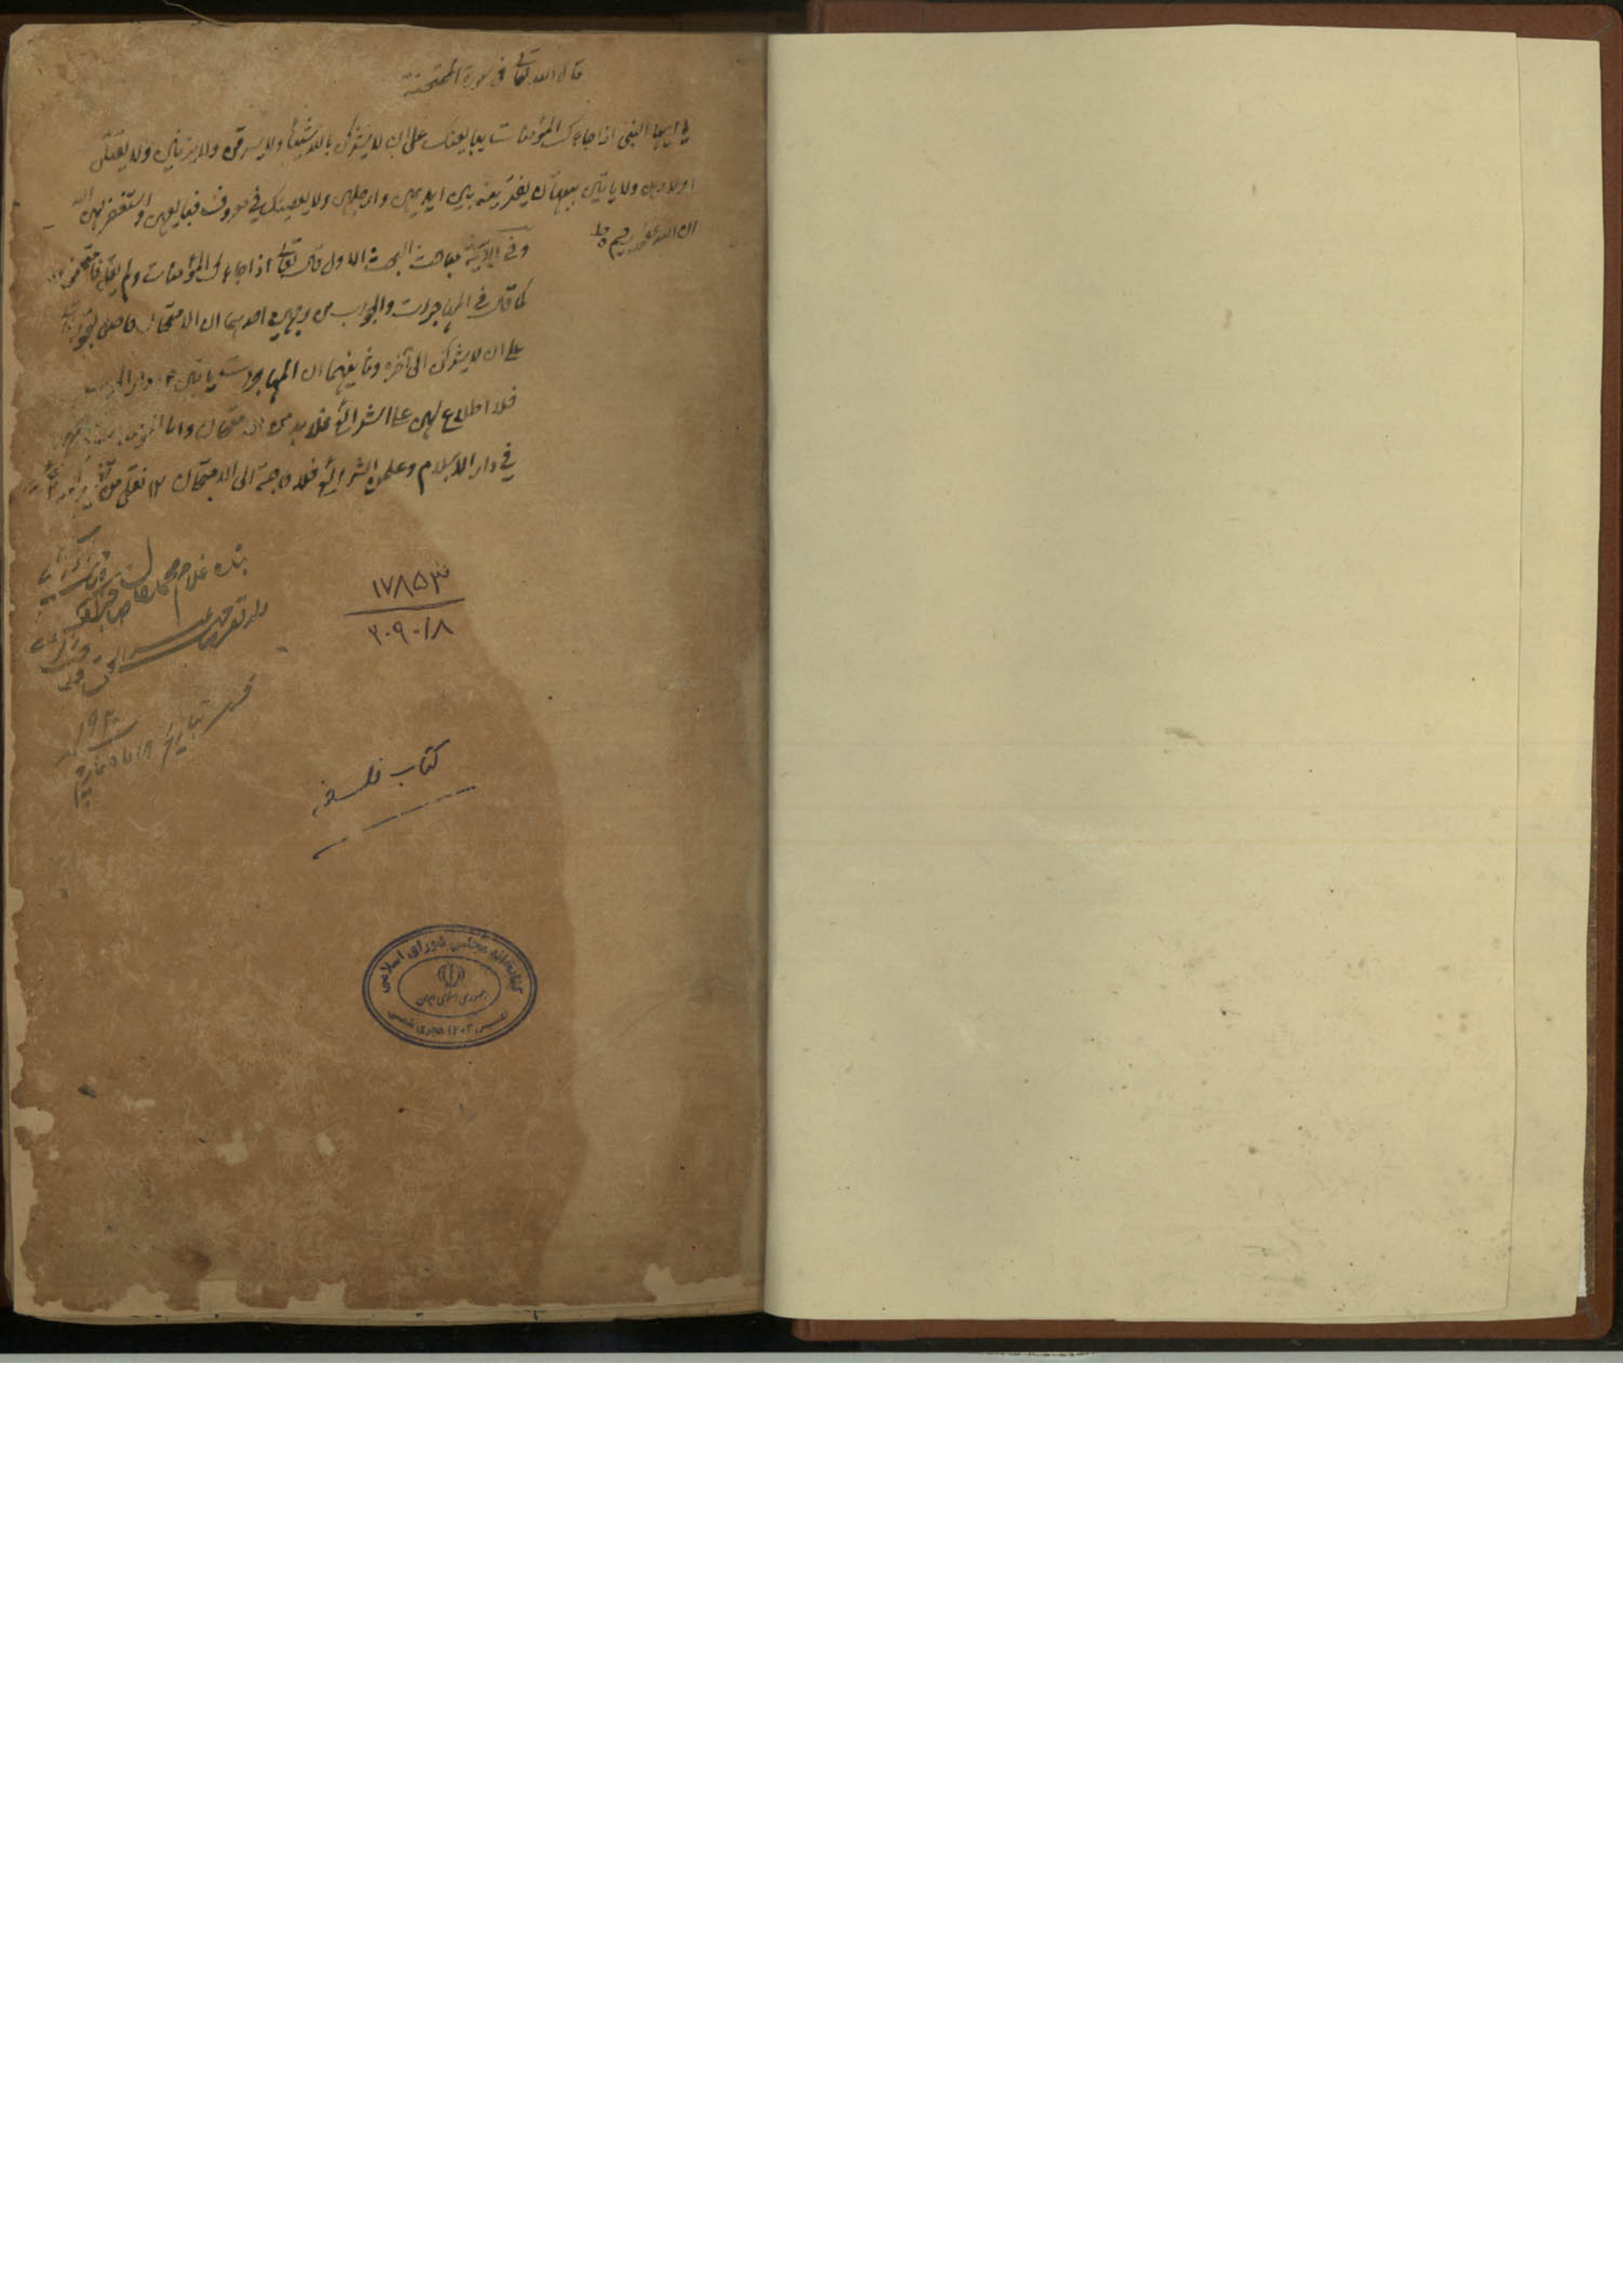 قال الله تعالى في سورة الممتحنة
يا ايها النبى اذا جاءك المؤمنات يبايعنك على ان لا يشركن بالله شيئا ولا يسرقن ولا يزنين ولا يقتلن
اولادهن ولا ياتين ببهتان يفترينه بين ايديهن وارجلهن ولا يعصينك في معروف فبايعهن واستغفر لهن الله
ان الله غفور رحيم
وفي الآية مباحث البحث الاول قال تعالى اذا جاءك المؤمنات ولم يقل فامتحنوهن
كما قال في المهاجرات والجواب من وجهين احدهما ان الامتحان حاصل بقوله تعالى
على ان لا يشركن الى آخره وثانيهما ان المهاجرات ياتين من دار الحرب
فلا اطلاع لهن على الشرائع فلا بد من الامتحان واما المؤمنات فهن
في دار الاسلام وعلمن الشرائع فلا حاجة الى الامتحان ١٢ نقل من تفسير
بنده غلام
۱۷۸۵۳
۲۰۹۰/۸
کتاب فلسفه
کتابخانه مجلس شورای اسلامی
جمهوری اسلامی ایران
تاسیس ۱۳۰۲ هجری شمسی